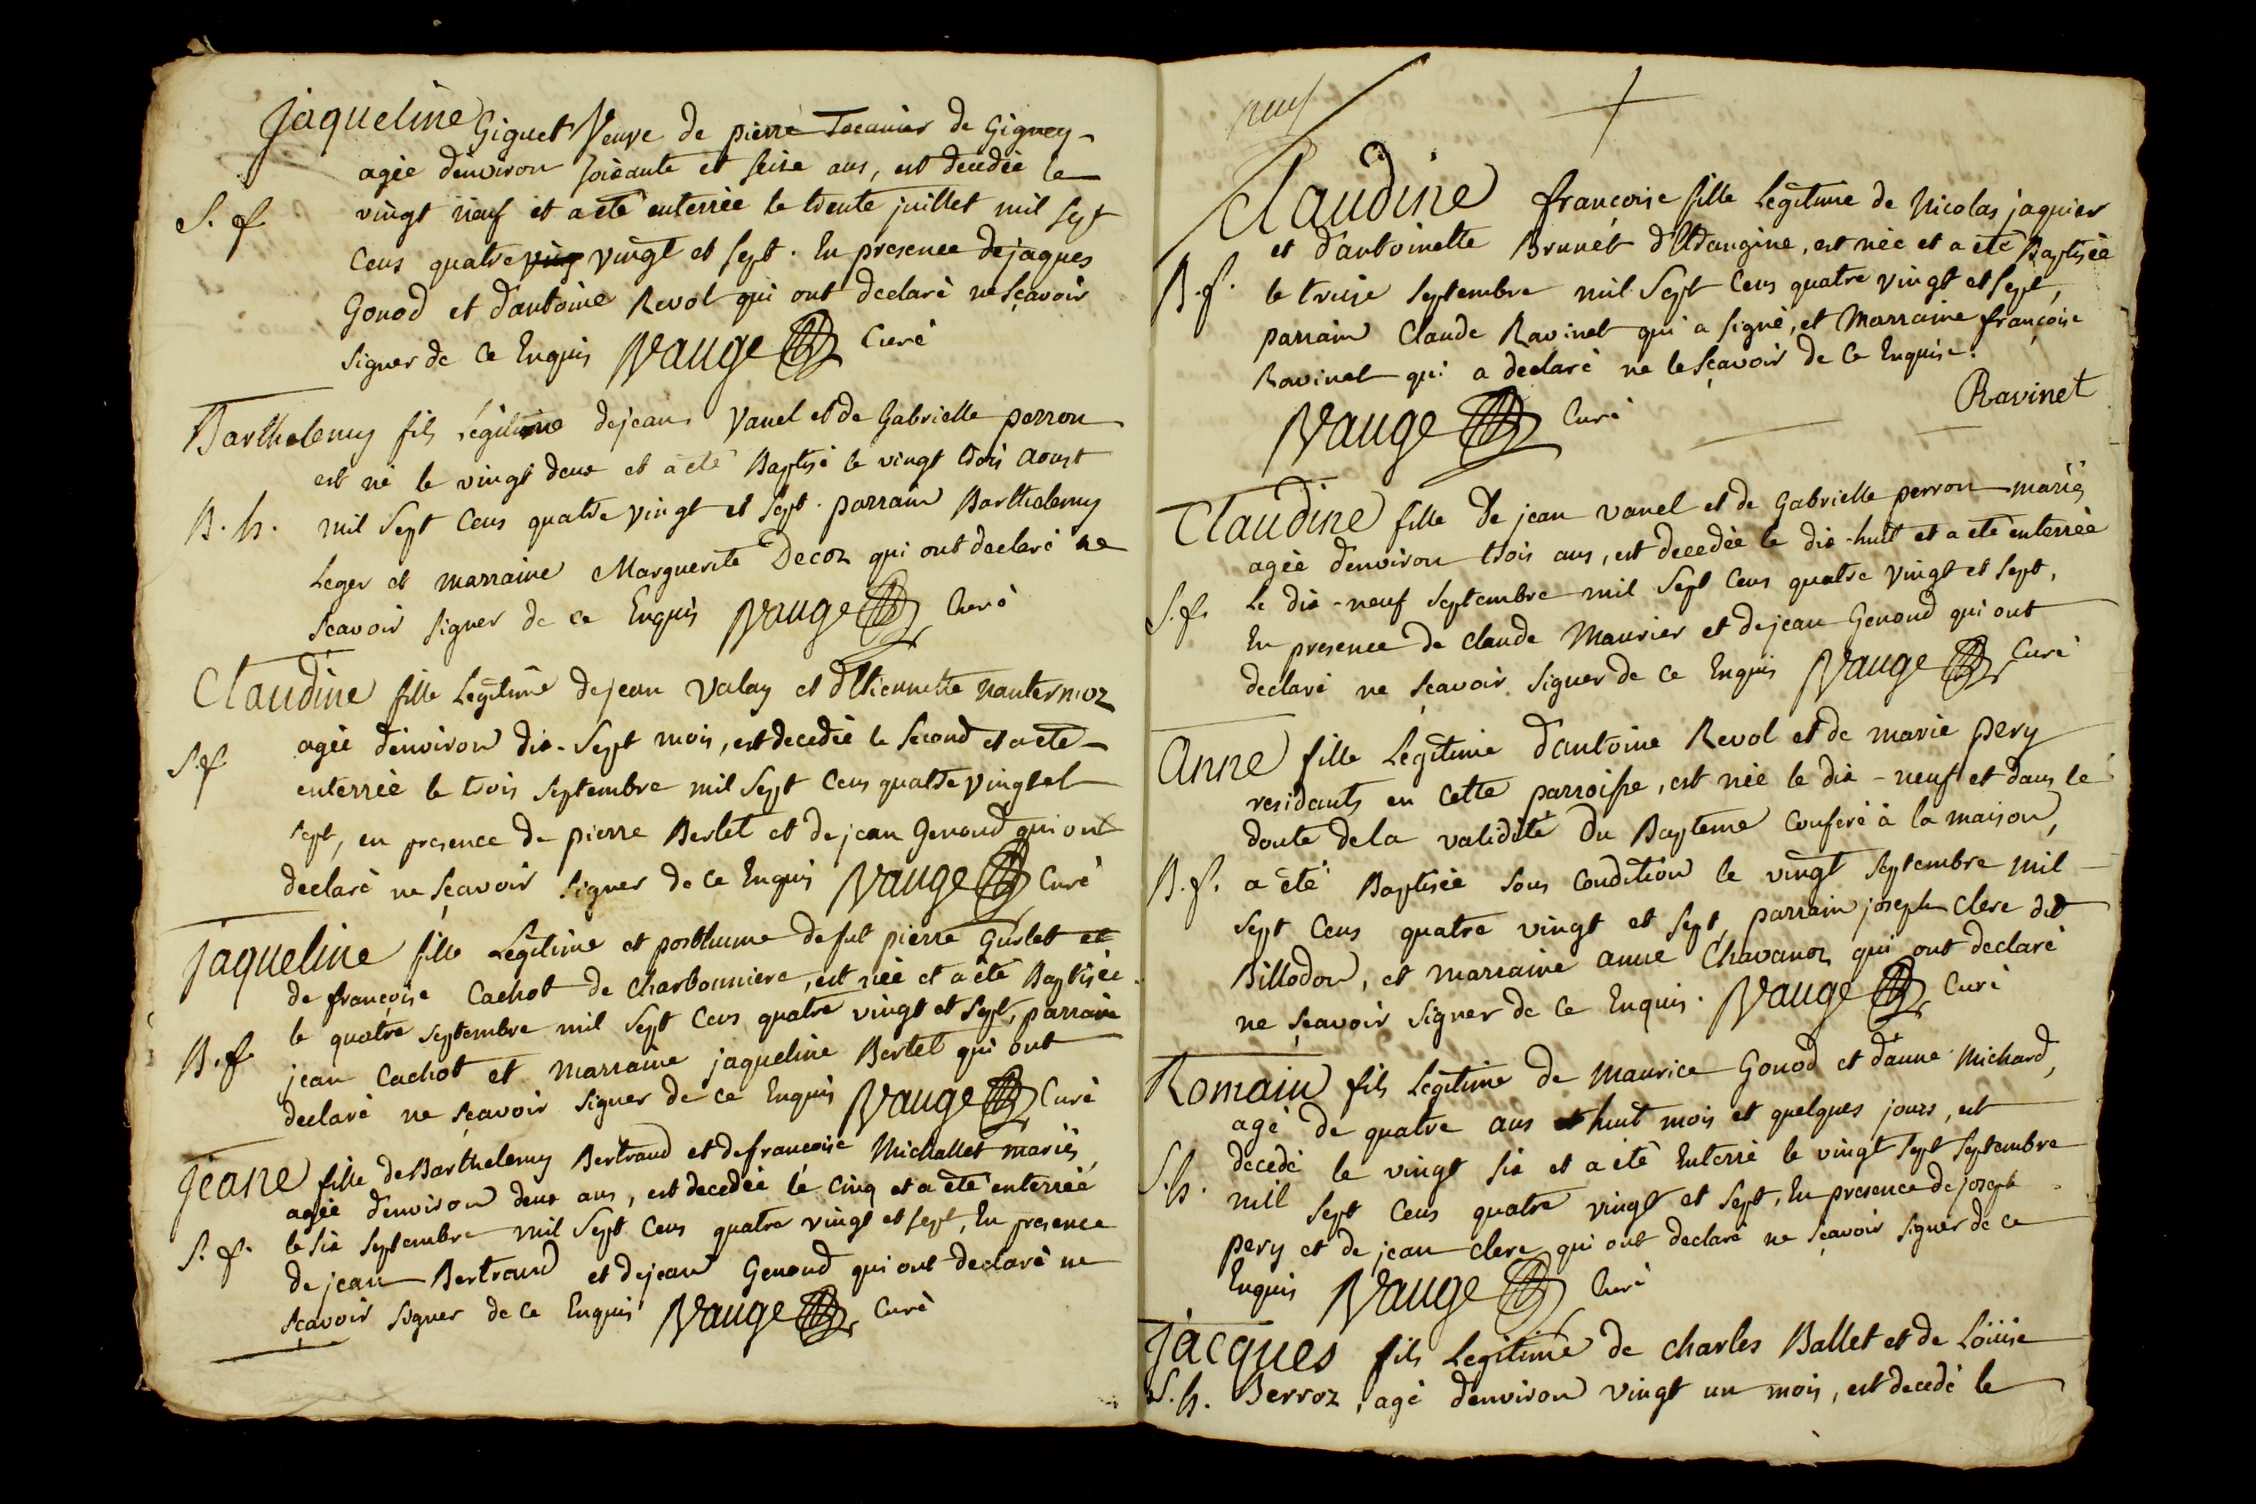 Jaqueline Giguet Veuve de pierre Tocanier de Gigney
agée d'environ soixante et seize ans, est decedée le
S. f. vingt neuf et a eté enterrée le trente juillet mil sept
Cens quatre ving vingt et sept. En presence de jaques
Gonod et d'antoine Revol qui ont declaré ne sçavoir
signer de Ce Enquis Vauge Curé
Barthelemy fils Légitime de jean Vanel et de Gabrielle perron
est né le vingt deux et a eté Baptisé le vingt trois Aoust
B. h. mil Sept Cens quatre vingt et Sept. parrain Barthelemy
Leger et marraine Marguerite Decoz qui ont declaré ne
Scavoir signer de ce Enquis Vauge Curé
Claudine fille Legitime de jean Valay et d'Etiennette nantermoz
S. f. agée d'environ dix-Sept mois, est decedée le Second et a eté
enterrée le trois Septembre mil Sept Cens quatre Vingt et
Sept, en presence de pierre Berlet et de jean Genoud qui ont
declaré ne sçavoir signer de Ce Enquis Vauge Curé
Jaqueline fille Legitime et posthume de fut pierre Guslet et
de françoise Cachot de Charbonniere, est née et a eté Baptisée
B. f. le quatre septembre mil Sept Cens quatre vingt et Sept, parrain
jean Cachot et marraine jaqueline Bertet qui ont
declaré ne sçavoir signer de ce Enquis Vauge Curé
Jeane fille de Barthelemy Bertrand et de francoise Michallet mariés
agée d'environ deux ans, est decedée le Cinq et a eté enterrée
S. f. le six Septembre mil Sept Cens quatre vingt et sept, En presence
de jean Bertrand et de jean Genoud qui ont declaré ne
sçavoir signer de Ce Enquis Vauge Curé
neuf
Claudine françoise fille Legitime de Nicolas jaquier
et d'antoinette Brunet d'Etdangine, est née et a eté Baptisée
B. f. le treize septembre mil Sept Cens quatre vingt et sept,
parrain Claude Ravinet qui a signé, et Marraine françoise
Ravinet qui a declaré ne le sçavoir de Ce Enquise.
Ravinet
Vauge Curé
Claudine fille de jean vanel et de Gabrielle perron mariés
agée d'environ trois ans, est decedée le dix-huit et a eté enterrée
S. f. le dix-neuf septembre mil Sept Cens quatre vingt et sept,
En presence de claude Maurier et de jean Genoud qui ont
declaré ne sçavoir signer de Ce Enquis Vauge Curé
Anne fille Legitime d'antoine Revol et de marie pery
residants en Cette parroisse, est née le dix-neuf et dans le
doute de la validité du Bapteme conferé à la maison,
B. f. a été Baptisée sous condition le vingt septembre mil
Sept Cens quatre vingt et sept, parrain joseph clere dit
Billodon, et marraine anne Chavanoz qui ont declaré
ne sçavoir signer de Ce Enquis. Vauge Curé
Romain fils Legitime de Maurice Gonod et d'anne Michard,
agé de quatre ans et huit mois et quelques jours, est
S. h. decedé le vingt six et a été Enterré le vingt sept septembre
mil Sept Cens quatre vingt et sept, En presence de joseph
pery et de jean clere qui ont declaré ne sçavoir signer de ce
Enquis Vauge Curé
Jacques fils Legitime de charles Ballet et de Loüise
S. h. Berroz, agé d'environ vingt un mois, est decedé le